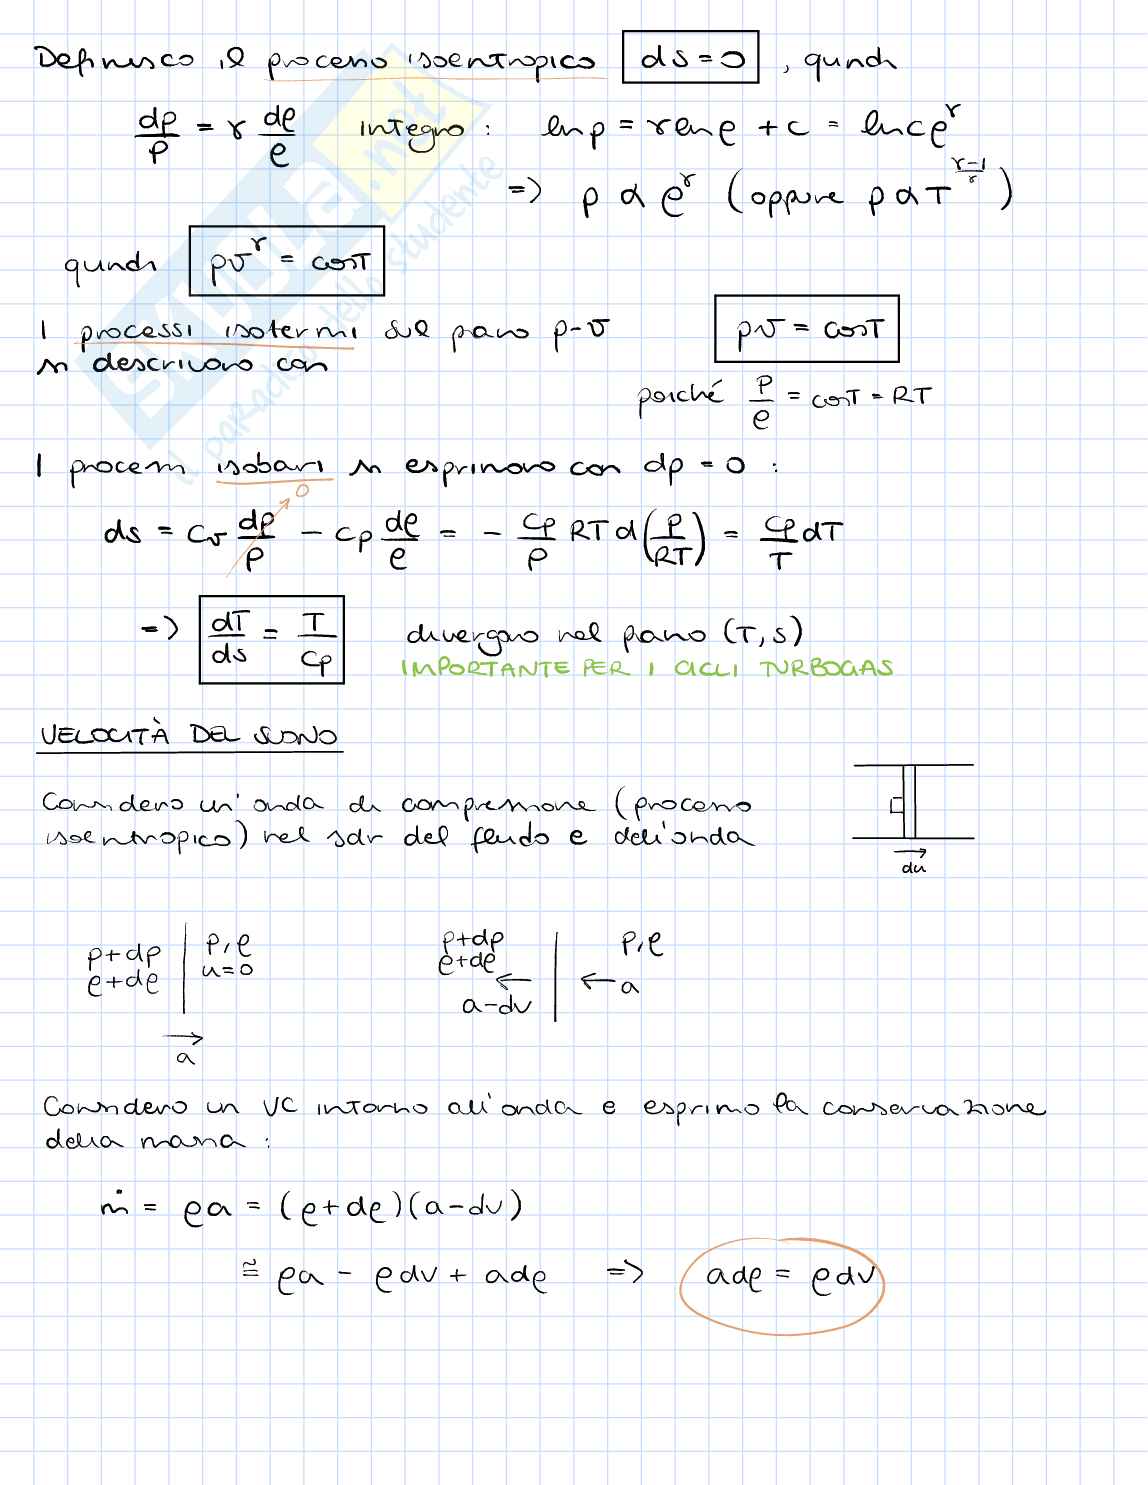 Definisco il processo isoentropico ds = 0 , quindi
dp/p = γ dρ/ρ integro : ln p = γ ln ρ + c = ln c ρ^γ
=> p ∝ ρ^γ (oppure p ∝ T^((γ-1)/γ))
quindi pv^γ = cost
I processi isotermi sul piano p-v pv = cost
si descrivono con
poiché p/ρ = cost = RT
I processi isobari si esprimono con dp = 0 :
ds = Cv dp/p → 0 - Cp dρ/ρ = - Cp/ρ RT d(p/RT) = Cp/T dT
=> dT/ds = T/Cp divergono nel piano (T,s)
IMPORTANTE PER I CICLI TURBOGAS
VELOCITÀ DEL SUONO
Considero un'onda di compressione (processo
isoentropico) nel sdr del fluido e dell'onda
du
p+dp p, ρ p+dp p, ρ
ρ+dρ u=0 ρ+dρ
← a-dv ← a
→ a
Considero un VC intorno all'onda e esprimo la conservazione
della massa :
ṁ = ρa = (ρ+dρ)(a-dv)
≅ ρa - ρdv + adρ => adρ = ρdv
SKUOLA.net
il paradiso dello studente